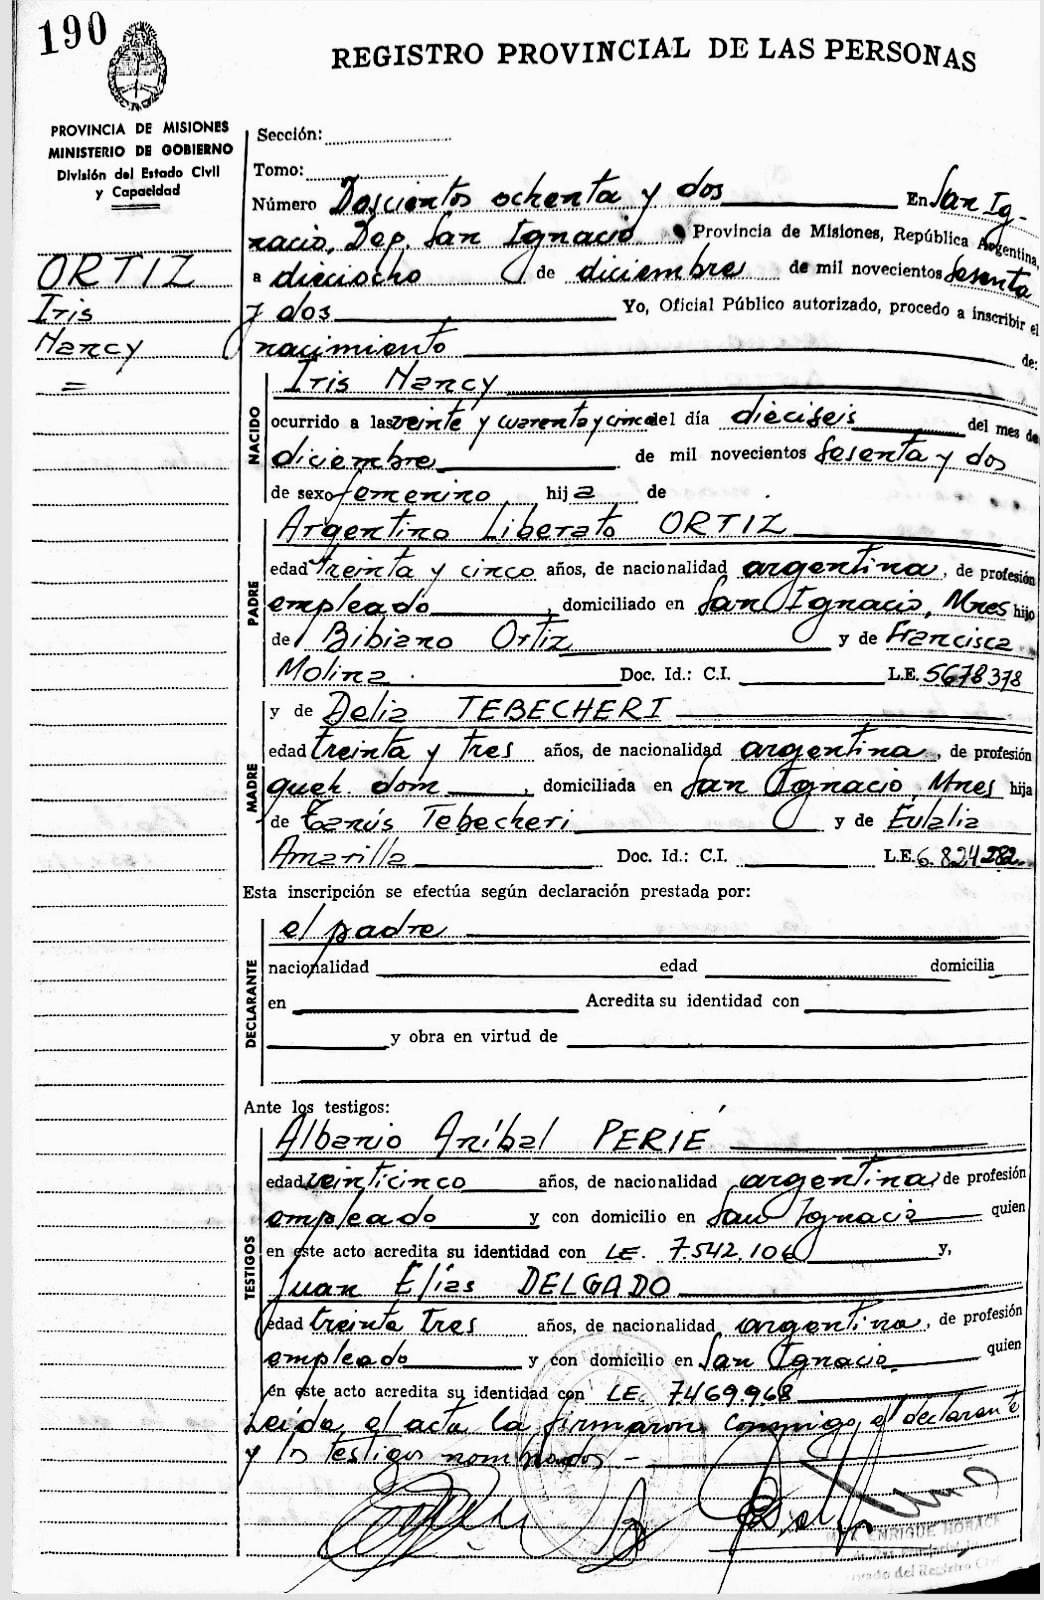 190
REGISTRO PROVINCIAL DE LAS PERSONAS
PROVINCIA DE MISIONES
MINISTERIO DE GOBIERNO
División del Estado Civil
y Capacidad
ORTIZ
Iris
Nancy
=
Sección:
Tomo:
Número Doscientos ochenta y dos En San Ig-
nacio, Dep. San Ignacio Provincia de Misiones, República Argentina,
a dieciocho de diciembre de mil novecientos sesenta
y dos Yo, Oficial Público autorizado, procedo a inscribir el
nacimiento de:
NACIDO
Iris Nancy
ocurrido a las veinte y cuarenta y cinco del día dieciseis del mes de
diciembre de mil novecientos sesenta y dos
de sexo femenino hija de
PADRE
Argentino Liberato ORTIZ
edad treinta y cinco años, de nacionalidad argentina, de profesión
empleado, domiciliado en San Ignacio, Mnes hijo
de Bibiano Ortiz y de Francisca
Molina. Doc. Id.: C.I. L.E. 5678378
MADRE
y de Delia TEBECHERI
edad treinta y tres años, de nacionalidad argentina, de profesión
queh. dom, domiciliada en San Ignacio, Mnes hija
de Tanús Tebecheri y de Eulalia
Amarilla Doc. Id.: C.I. L.E. 6.824.282
Esta inscripción se efectúa según declaración prestada por:
DECLARANTE
el padre
nacionalidad edad domicilia
en Acredita su identidad con
y obra en virtud de
Ante los testigos:
TESTIGOS
Albanio Aníbal PERIÉ
edad veinticinco años, de nacionalidad argentina, de profesión
empleado y con domicilio en San Ignacio quien
en este acto acredita su identidad con LE. 7.542.106 y,
Juan Elías DELGADO
edad treinta tres años, de nacionalidad argentina, de profesión
empleado y con domicilio en San Ignacio quien
en este acto acredita su identidad con LE. 7.469.968
Leída el acta la firmaron conmigo, el declarante
y los testigos nombrados -
ENRIQUE HORACE
del Registro